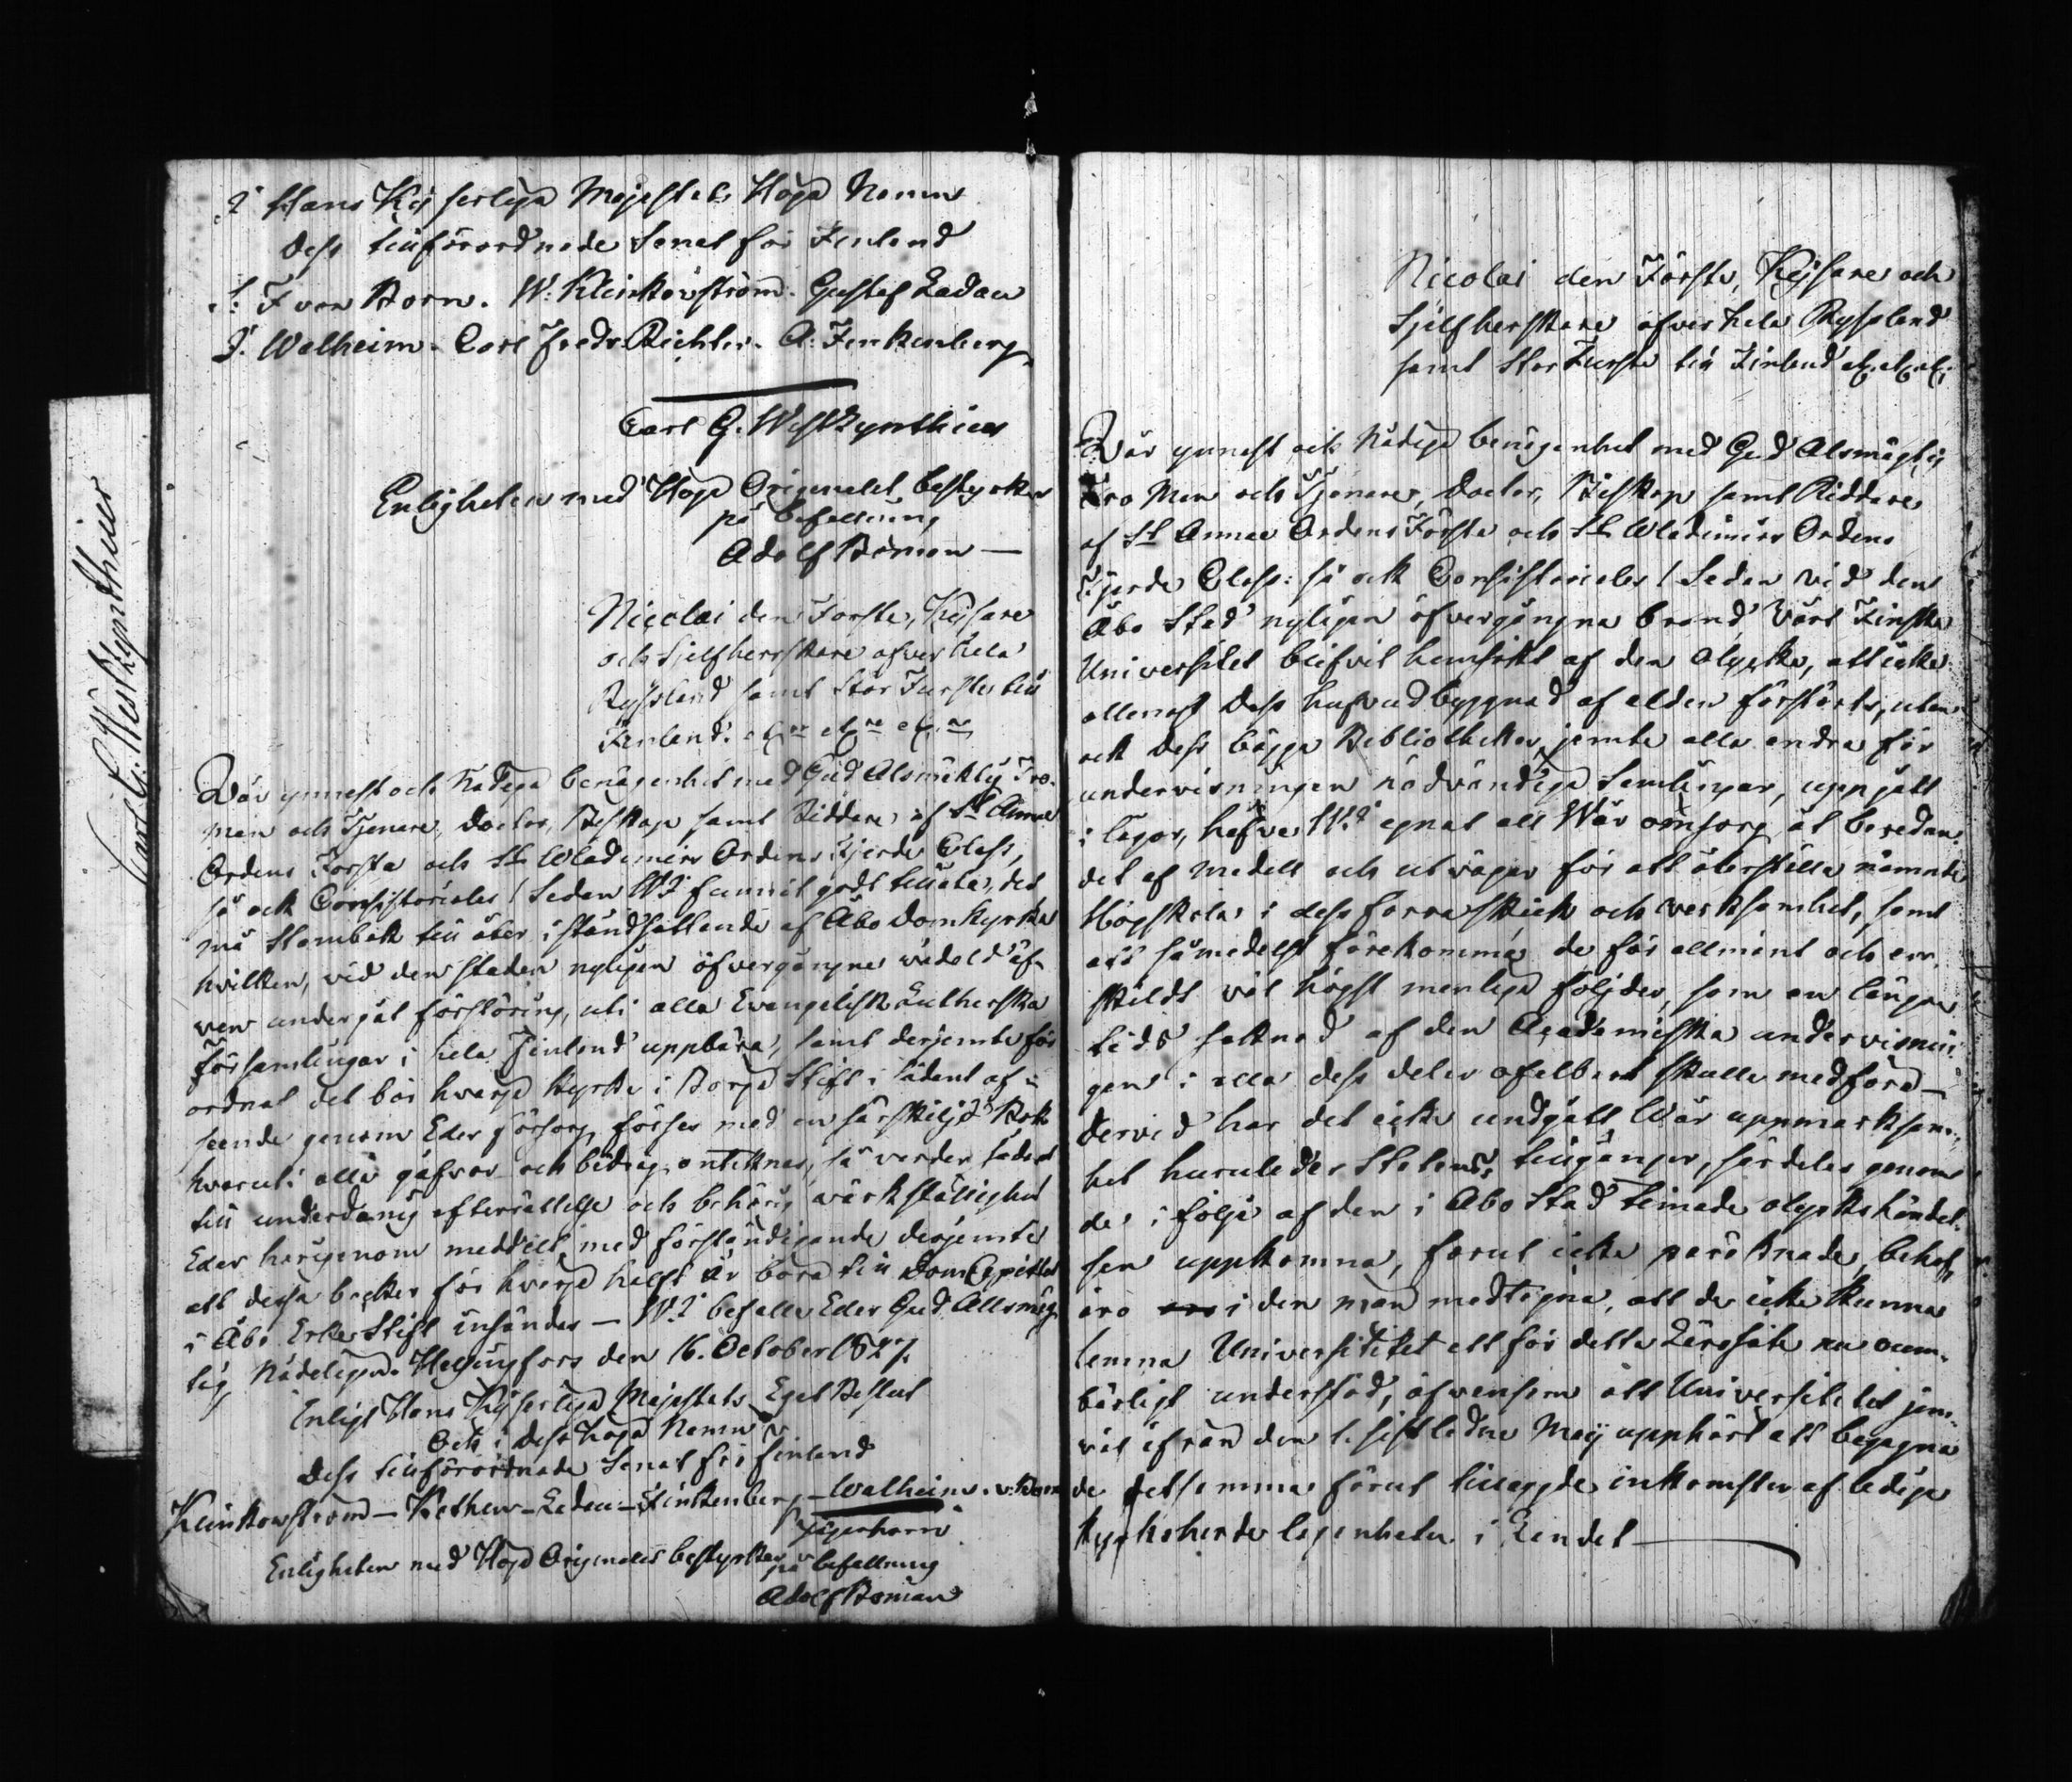 I Hans Kejserliga Majestets Höga Namn
Dess tillförordnade Senat för Finland
S: F von Born. W. Klinkowström. Gustaf Ladau
J. Walheim. Carl Fredr. Richter. A: Finkenberg
Carl G. Westzynthius
Enligheten med Höga Originalet bestyrker
på befallning
Adolf Boman
Nicolai den Förste, Kejsare
och Sjelfherrskare öfver hela
Ryssland samt Stor Furste till
Finland. etc. etc. etc.
Vår ynnest och Nådiga benägenhet med Gud Alsmäktig Tro-
man och Tjenare, Doctor, Biskop samt Riddare af St Annae
Ordens Första och St Wladimirs Ordens Fjerde Class,
så ock Consistoriales! Sedan Wi funnit godt tillåta, det
må Stambok till åter i ståndsättande af Åbo Domkyrka
hvilken, vid den staden nyligen öfvergångne vådeld äf-
ven undergåt förstöring, uti alla Evangelisk Lutherska
församlingar i hela Finland uppbära, samt derjemte för
ordnat det bör hvarje Kyrka i Borgå Stift i sådant af-
seende genom Eder försorg förses med en särskilld Bok
hvaruti alla gåfvor och bidrag antecknas, så varder sådant
till underdånig efterrättelse och behörig wärkställighet
Eder härigenom meddelt, med förständigande derjemte
att dessa böcker för hvarje halft år böra till DomCapitlet
i Åbo Erke Stift insändas — Wi befalle Eder Gud Allsmäg-
tig Nådeligen. Helsingfors den 16. October 1827.
Enligt Hans Kejserliga Majestets Eget Beslut
Och i dess höga Namn
Dess tillförordnade Senat för Finland
Klinkowström — Kothen — Ladau — Finkenberg — Walheim. v. Born
Jägerhorn
Enligheten med Höga Originalet bestyrker
på befallning
Adolf Boman
Carl G. Westzynthius
Nicolai den Förste, Kejsare och
Sjelfherskare öfver hela Ryssland
samt Stor Furste till Finland etc. etc. etc.
Vår ynnest och Nådiga benägenhet med Gud Alsmägtig
Tro Man och Tjenare, Doctor, Biskop samt Riddare
af St Annae Ordens Första och St Wladimirs Ordens
Fjerde Class: så ock Consistoriales! Sedan vid den
Åbo Stad nyligen öfvergångna brand Vårt Finska
Universitet blifvit hemsökt af den olycka, att icke
allenast Dess hufvudbyggnad af elden förstörts, utan
ock Dess bägge Bibliotheker, jemte alla andra för
undervisningen nödvändiga Samlingar, uppgått
i lågor, hafve Wi egnat all Wår omsorg åt beredan-
det af medell och utvägar för att återställa nämnde
Högskola i dess forra skick och verksamhet, samt
att såmedelst förekomma de för allmänt och en-
skildt väl högst menliga följder, som en längre
tids saknad af den Academiska undervisnin-
gen i alla dess delar ofelbart skulle medföra —
dervid har det icke undgått Wår uppmärksam-
het huruledes Statens tillgångar, särdeles genom
de i följe af den i Åbo Stad timade olyckshändel-
sen uppkomna, förut icke påräknade, behof,
äro i den mån medtagna, att de icke kunna
lemna Universitetet ett för detta Lärosäte nu oum-
bärligt understöd, äfvensom att Universitetet jem-
väl ifrån den 1. sistledne Maij upphört att begagna
de detsamma förut tillagde inkomster af lediga
Kyrkoherde lägenheter i Landet —